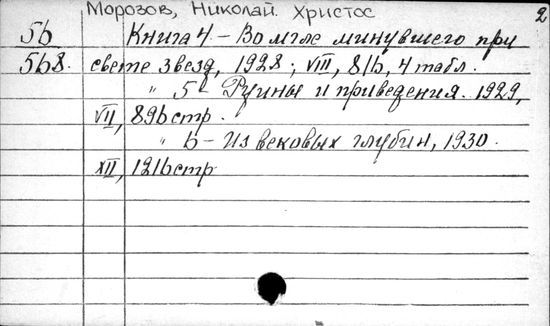 Морозов, Николай. Христос 2
5б Книга 4 - Во мгле минувшего при
5б8. свете звезд, 1928; VIII, 81б, 4 табл.
" 5 - Руины и приведения. 1929,
VII, 89б стр.
" б - Из вековых глубин, 1930.
XII, 121б стр